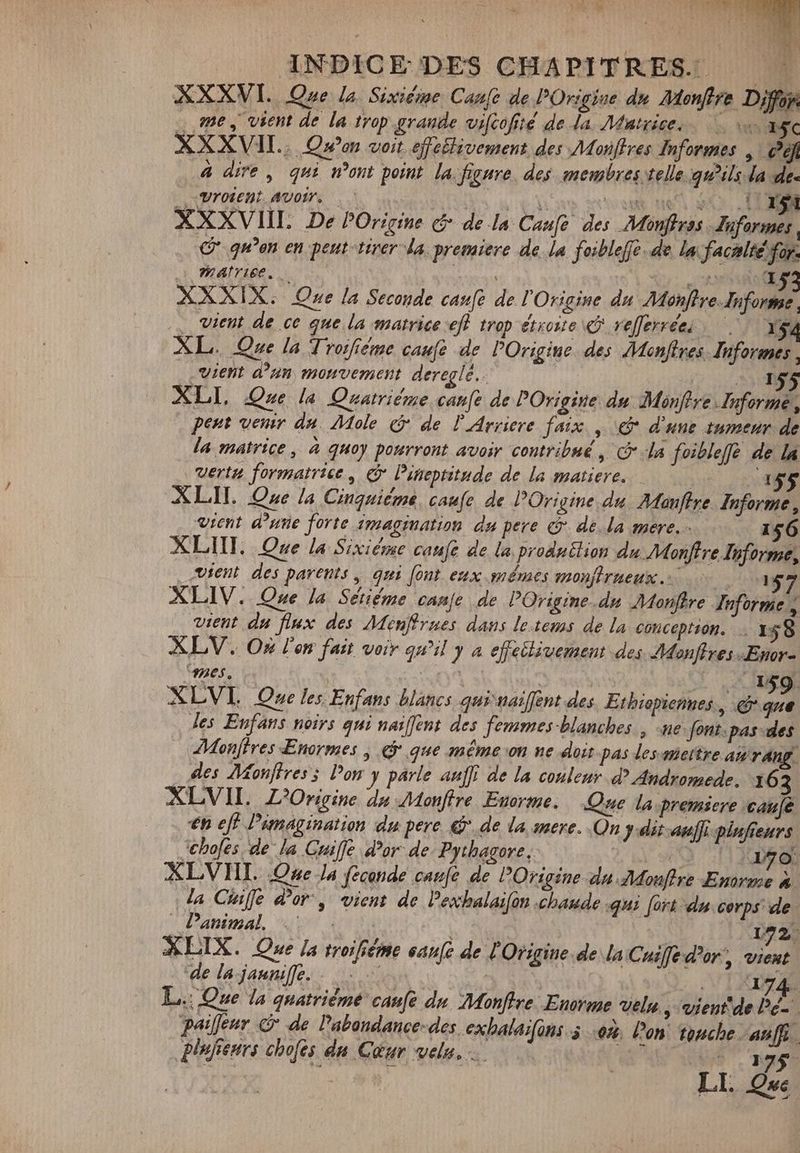 INDICE DES CHAPITRES.
XXXVI. Que la Sixiéme Cauſe de l'Origine du Monſtre Diffor-
me, vient de la trop grande viſcoſité de la Matrice. 150
XXXVII. Qu'on voit effectivement des Monſtres Informes, c'eſt
à dire, qui n'ont point la figure des membres telle qu'ils la de-
vroient avoir. 151
XXXVIII. De l'Origine & de la Cauſe des Monſtres Informes,
& qu'on en peut tirer la premiere de la foibleſſe de la faculté for-
matrice. 153
XXXIX. Que la Seconde cauſe de l'Origine du Monſtre Informe,
vient de ce que la matrice eſt trop étroite & reſſerrée. 154
XL. Que la Troiſiéme cauſe de l'Origine des Monſtres Informes,
vient d'un mouvement dereglé. 155
XLI. Que la Quatriéme cauſe de l'Origine du Monſtre Informe,
peut venir du Mole & de l'Arriere faix, & d'une tumeur de
la matrice, à quoy pourront avoir contribué, & la foibleſſe de la
vertu formatrice, & l'ineptitude de la matiere. 155
XLII. Que la Cinquiéme cauſe de l'Origine du Monſtre Informe,
vient d'une forte imagination du pere & de la mere. 156
XLIII. Que la Sixiéme cauſe de la production du Monſtre Informe,
vient des parents, qui ſont eux mémes monſtrueux. 157
XLIV. Que la Sétiéme cauſe de l'Origine du Monſtre Informe,
vient du flux des Menſtrues dans le tems de la conception. 158
XLV. Où l'on fait voir qu'il y a effectivement des Monſtres Enor-
mes. 159
XLVI. Que les Enfans blancs qui naiſſent des Ethiopiennes, & que
les Enfans noirs qui naiſſent des femmes blanches, ne ſont pas des
Monſtres Enormes, & que méme on ne doit pas les mettre au rang
des Monſtres; l'on y parle auſſi de la couleur d'Andromede. 163
XLVII. L'Origine du Monſtre Enorme. Que la premiere cauſe
en eſt l'imagination du pere & de la mere. On y dit auſſi pluſieurs
choſes de la Cuiſſe d'or de Pythagore. 170
XLVIII. Que la ſeconde cauſe de l'Origine du Monſtre Enorme à
la Cuiſſe d'or, vient de l'exhalaiſon chaude qui ſort du corps de
l'animal. 172
XLIX. Que la troiſiéme cauſe de l'Origine de la Cuiſſe d'or, vient
de la jauniſſe. 174
L. Que la quatriéme cauſe du Monſtre Enorme velu, vient de l'é-
paiſſeur & de l'abondance des exhalaiſons; où l'on touche auſſi
pluſieurs choſes du Cœur velu. 175
LI. Que